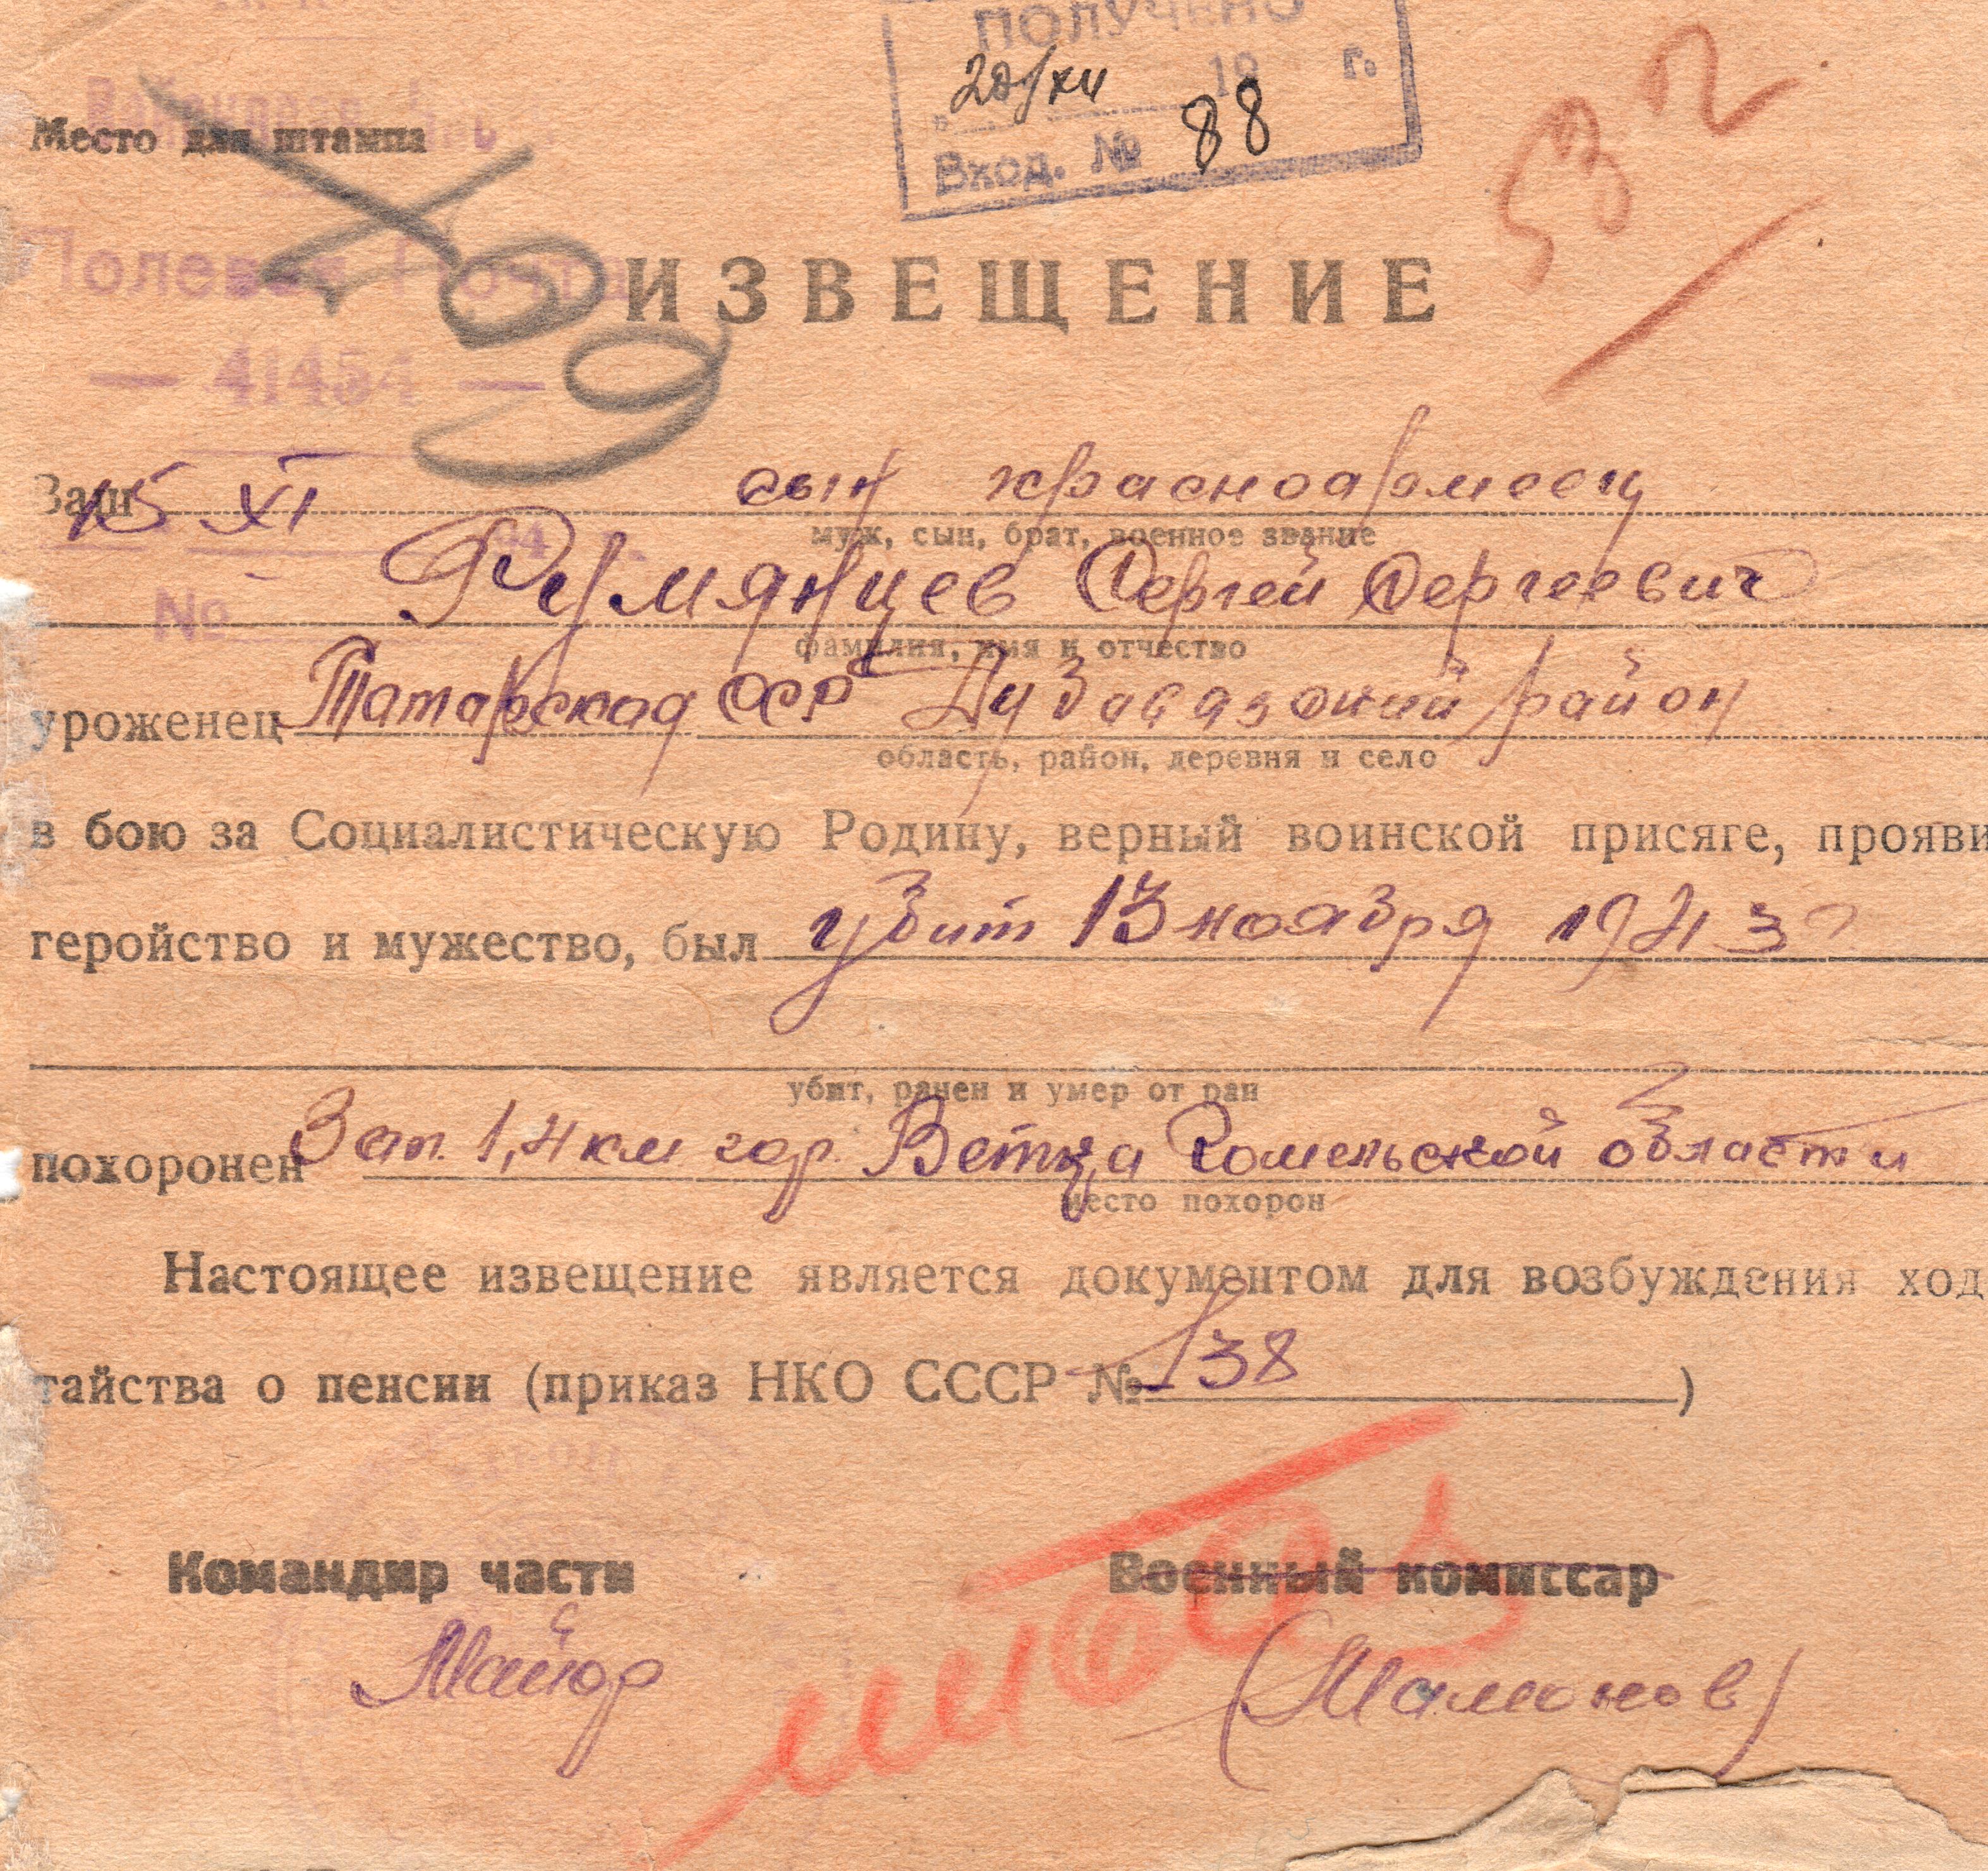 ПОЛУЧЕНО
20/XII 19 г.
Вход. № 88
532
Место для штампа
Полевая Почта
— 41454 —
ИЗВЕЩЕНИЕ
Ваш сын красноармеец
15 XI 194
муж, сын, брат, военное звание
Румянцев Сергей Сергеевич
№
фамилия, имя и отчество
уроженец Татарская ССР район
область, район, деревня и село
в бою за Социалистическую Родину, верный воинской присяге, прояви
геройство и мужество, был убит 13 ноября 1943 г
убит, ранен и умер от ран
похоронен Зап. 1,4 км гор. Ветка Гомельской области
место похорон
Настоящее извещение является документом для возбуждения ход
тайства о пенсии (приказ НКО СССР № 138 )
Командир части Военный комиссар
Майор (Мамонов)